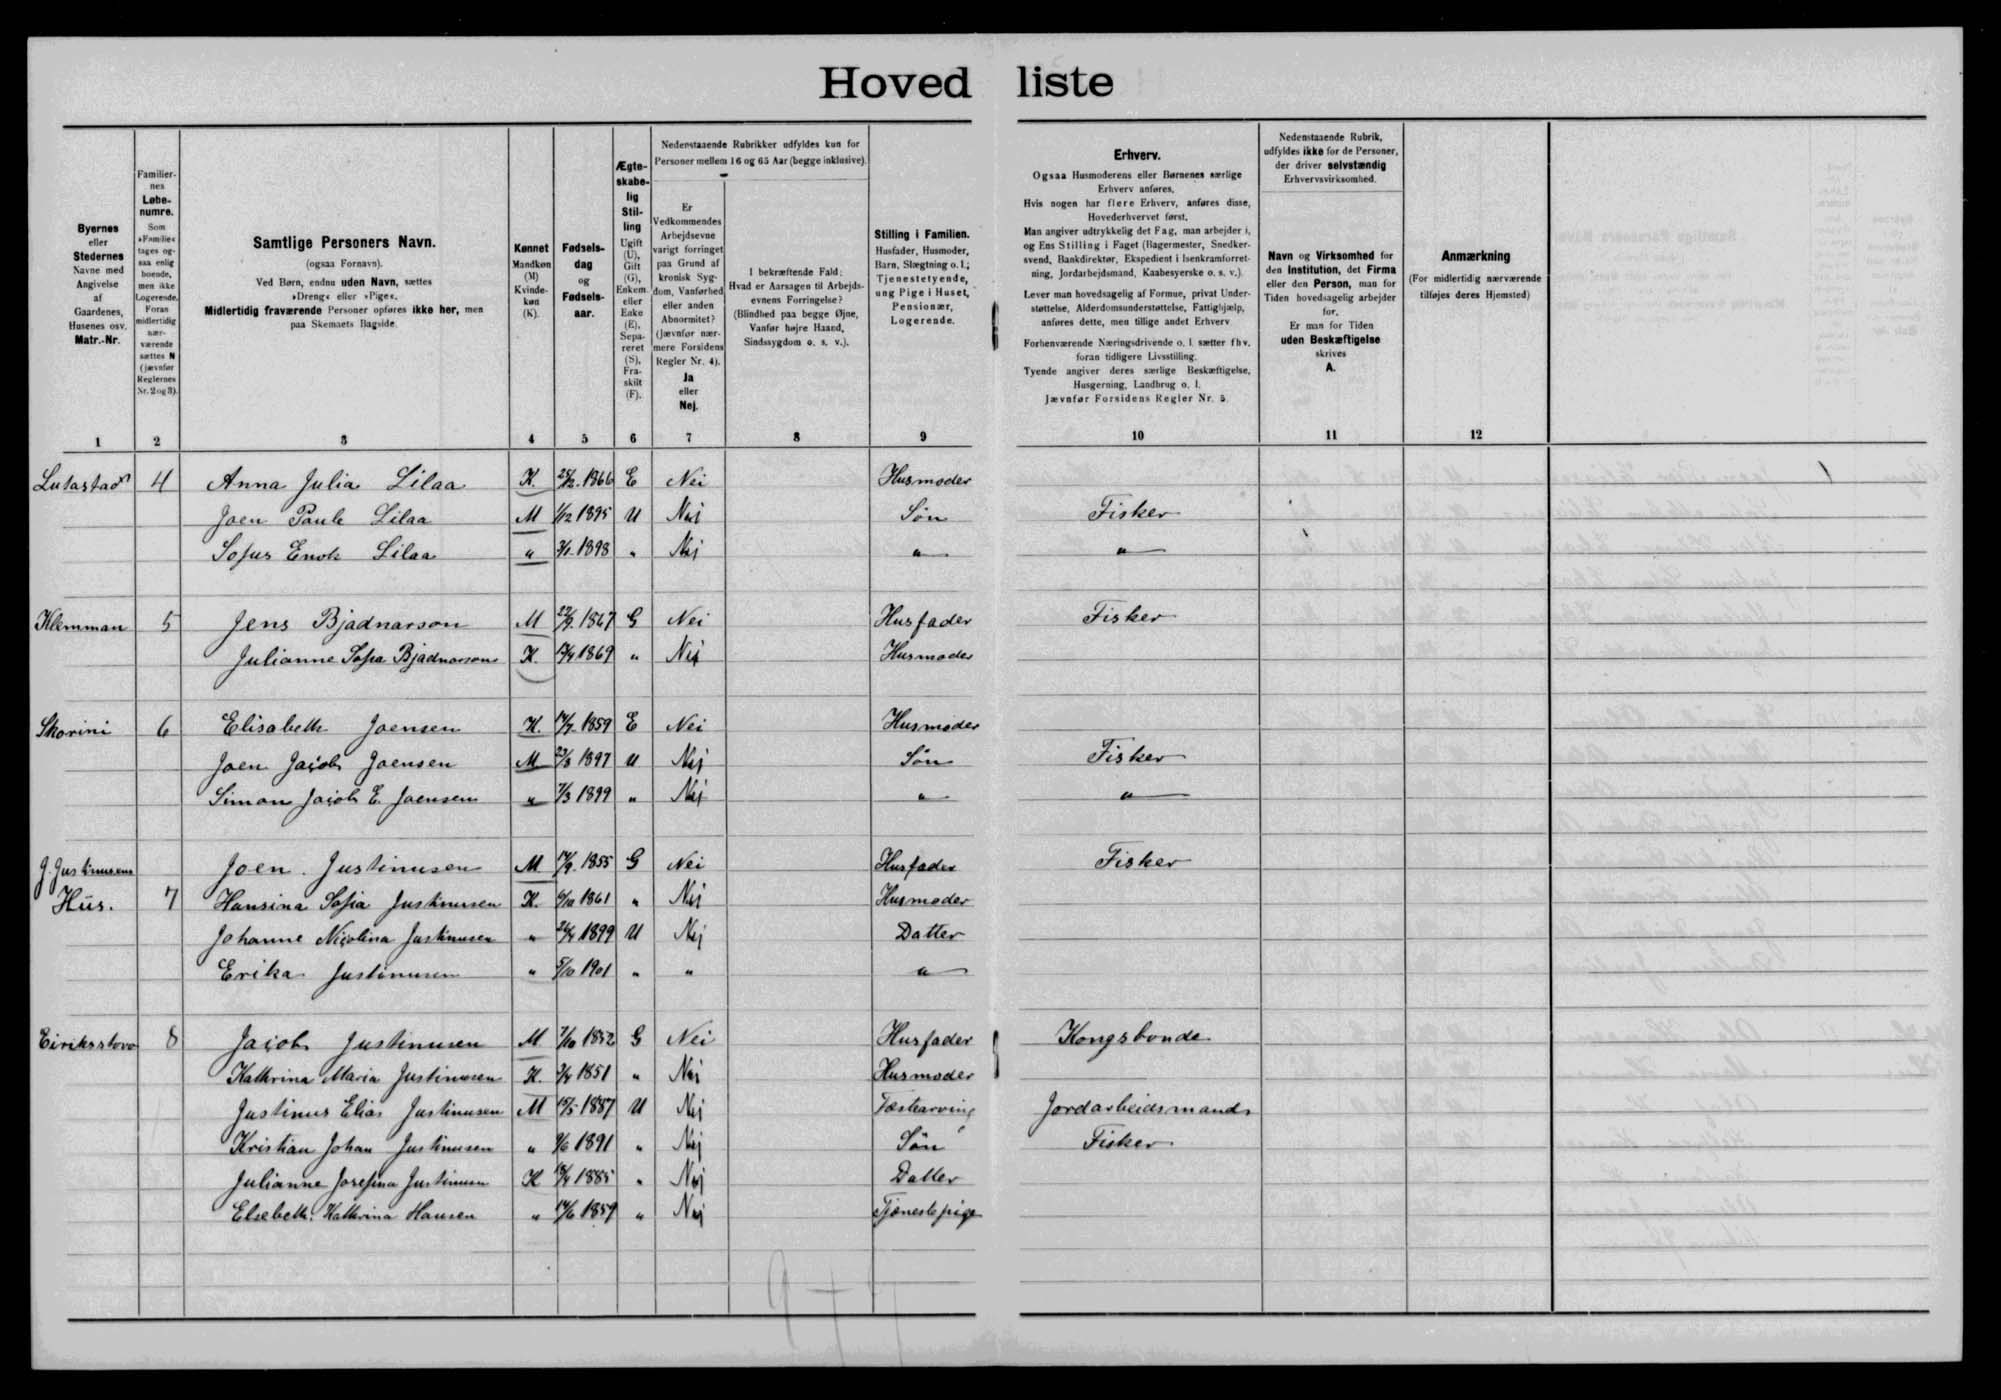 Hovedliste
Byernes
eller
Stedernes
Navne med
Angivelse
af
Gaardenes,
Husenes osv.
Matr.-Nr.
Familier-
nes
Løbe-
numre.
Som
»Familie«
tages og-
saa enlig
boende,
men ikke
Logerende.
Foran
midlertidig
nær-
værende
sættes N
(jævnfør
Reglernes
Nr. 2 og 3).
Samtlige Personers Navn.
(ogsaa Fornavn).
Ved Børn, endnu uden Navn, sættes
»Dreng« eller »Pige«.
Midlertidig fraværende Personer opføres ikke her, men
paa Skemaets Bagside.
Kønnet
Mandkøn
(M)
Kvinde-
køn
(K).
Fødsels-
dag
og
Fødsels-
aar.
Ægte-
skabe-
lig
Stil-
ling
Ugift
(U),
Gift
(G),
Enkem.
eller
Enke
(E),
Sepa-
reret
(S),
Fra-
skilt
(F).
Nedenstaaende Rubrikker udfyldes kun for
Personer mellem 16 og 65 Aar (begge inklusive).
Er
Vedkommendes
Arbejdsevne
varigt forringet
paa Grund af
kronisk Syg-
dom, Vanførhed
eller anden
Abnormitet?
(Jævnfør nær-
mere Forsidens
Regler Nr. 4).
Ja
eller
Nej.
I bekræftende Fald:
Hvad er Aarsagen til Arbejds-
evnens Forringelse?
(Blindhed paa begge Øjne,
Vanfør højre Haand,
Sindssygdom o. s. v.).
Stilling i Familien.
Husfader, Husmoder,
Barn, Slægtning o. l.;
Tjenestetyende,
ung Pige i Huset,
Pensionær,
Logerende.
Erhverv.
Ogsaa Husmoderens eller Børnenes særlige
Erhverv anføres.
Hvis nogen har flere Erhverv, anføres disse,
Hovederhvervet først.
Man angiver udtrykkelig det Fag, man arbejder i,
og Ens Stilling i Faget (Bagermester, Snedker-
svend, Bankdirektør, Ekspedient i Isenkramforret-
ning, Jordarbejdsmand, Kaabesyerske o. s. v.).
Lever man hovedsagelig af Formue, privat Under-
støttelse, Alderdomsunderstøttelse, Fattighjælp,
anføres dette, men tillige andet Erhverv
Forhenværende Næringsdrivende o. l. sætter fhv.
foran tidligere Livsstilling.
Tyende angiver deres særlige Beskæftigelse,
Husgerning, Landbrug o. l.
Jævnfør Forsidens Regler Nr. 5.
Nedenstaaende Rubrik,
udfyldes ikke for de Personer,
der driver selvstændig
Erhvervsvirksomhed.
Navn og Virksomhed for
den Institution, det Firma
eller den Person, man for
Tiden hovedsagelig arbejder
for.
Er man for Tiden
uden Beskæftigelse
skrives
A.
Anmærkning
(For midlertidig nærværende
tilføjes deres Hjemsted)
1 2 3 4 5 6 7 8 9 10 11 12
4 Anna Julia Lilaa K. 1866 E Nei Husmoder
Joen Paule Lilaa M 1/12 1895 U Nei Søn Fisker
Sofus Enok Lilaa " 1898 " Nej " "
Klemman 5 Jens Bjadnarson M 22/9 1867 G Nei Husfader Fisker
Julianne Sofia Bjadnarson K. 1869 " Nej Husmoder
Skorini 6 Elisabeth Joensen K. 1859 E Nei Husmoder
Joen Jacob Joensen M 23/3 1897 U Nej Søn Fisker
Simon Jacob E. Joensen " 7/3 1899 " Nej " "
J. Justinusens Joen Justinusen M 1855 G Nei Husfader Fisker
Hus. 7 Hansina Sofia Justinusen K. 6/10 1861 " Nej Husmoder
Johanne Nicolina Justinusen " 1899 U Nej Datter
Erika Justinusen " 5/10 1901 " " "
Eiriksstova 8 Jacob Justinusen M 7/10 1852 G Nei Husfader Kongsbonde
Kathrina Maria Justinusen K. 1851 " Nej Husmoder
Justinus Elias Justinusen M 1887 U Nej Fæstearving Jordarbeidsmand
Kristian Johan Justinusen " 9/6 1891 " Nej Søn Fisker
Julianne Josefina Justinusen K 1885 " Nej Datter
Elsebeth Kathrina Hansen " 1859 " Nej Tjænestepige